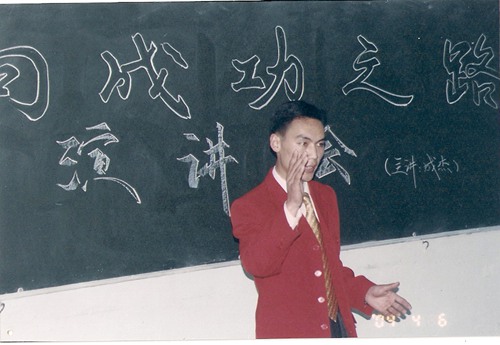 向成功之路
演讲会 (主讲:成杰)
4 6